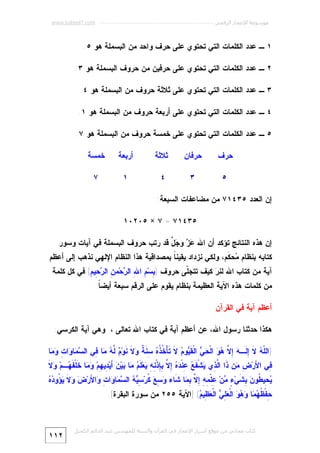 موسوعة الإعجاز الرقمي
www.kaheel7.com
١ ــ عدد الكلمات التي تحتوي على حرف واحد من البسملة هو ٥
٢ ــ عدد الكلمات التي تحتوي على حرفين من حروف البسملة هو ٣
٣ ــ عدد الكلمات التي تحتوي على ثلاثة حروف من البسملة هو ٤
٤ ــ عدد الكلمات التي تحتوي على أربعة حروف من البسملة هو ١
٥ ــ عدد الكلمات التي تحتوي على خمسة حروف من البسملة هو ٧
حرف حرفان ثلاثة أربعة خمسة
٥ ٣ ٤ ١ ٧
إن العدد ٧١٤٣٥ من مضاعفات السبعة
٧١٤٣٥ = ٧ × ١٠٢٠٥
إن هذه النتائج تؤكد أن الله عزّ وجلّ قد رتب حروف البسملة في آيات وسور
كتابه بنظام مُحكم، ولكي نزداد يقيناً بمصداقية هذا النظام الإلهي نذهب إلى أعظم
آية من كتاب الله لنر كيف تتجلّى حروف (بِسْمِ اللهِ الرَّحْمنِ الرَّحِيمِ) في كل كلمة
من كلمات هذه الآية العظيمة بنظام يقوم على الرقم سبعة أيضاً
أعظم آية في القرآن
هكذا حدثنا رسول الله، عن أعظم آية في كتاب الله تعالى ، وهي آية الكرسي
(اللّهُ لاَ إِلَـــهَ إِلاَّ هُوَ الْحَيُّ الْقَيُّومُ لاَ تَأْخُذُهُ سِنَةٌ وَلاَ نَوْمٌ لَّهُ مَا فِي السَّمَاوَاتِ وَمَا
فِي الأَرْضِ مَن ذَا الَّذِي يَشْفَعُ عِنْدَهُ إِلاَّ بِإِذْنِهِ يَعْلَمُ مَا بَيْنَ أَيْدِيهِمْ وَمَا خَلْفَهُـــمْ وَلاَ
يُحِيطُونَ بِشَيْءٍ مِّنْ عِلْمِهِ إِلاَّ بِمَا شَاء وَسِعَ كُرْسِيُّهُ السَّمَاوَاتِ وَالأَرْضَ وَلاَ يَؤُودُهُ
حِفْظُهُمَا وَهُوَ الْعَلِيُّ الْعَظِيمُ) (الآية ٢٥٥ من سورة البقرة)
كتاب مجاني من موقع أسرار الإعجاز في القرآن والسنة للمهندس عبد الدائم الكحيل
١١٢